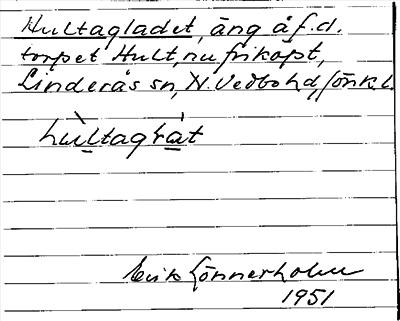 Hultagladet, äng å f.d.
torpet Hult, nu friköpt,
Linderås sn, N. Vedbo hd, Jönk.l.
Erik Lönnerholm
1951